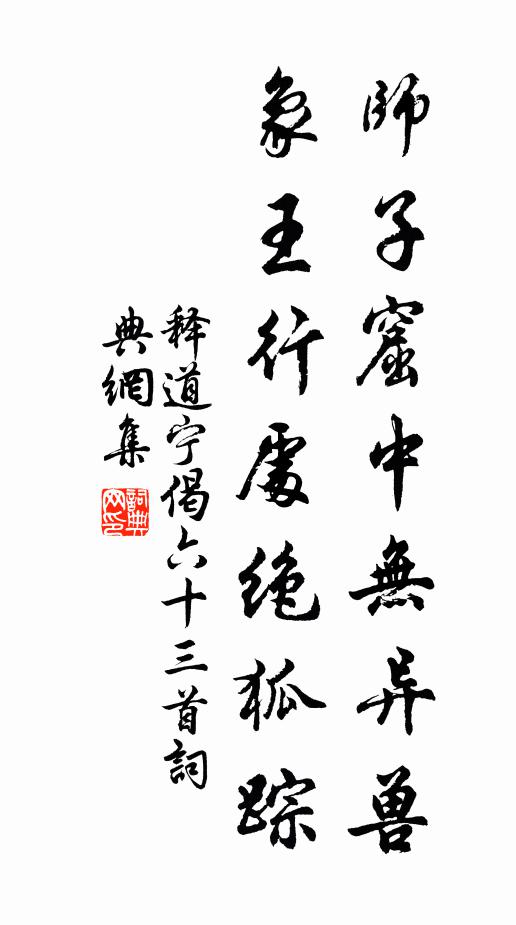 師子窟中無异兽
象王行處絶狐踪
释道宁偈六十三首詞
典網集
詞典网印